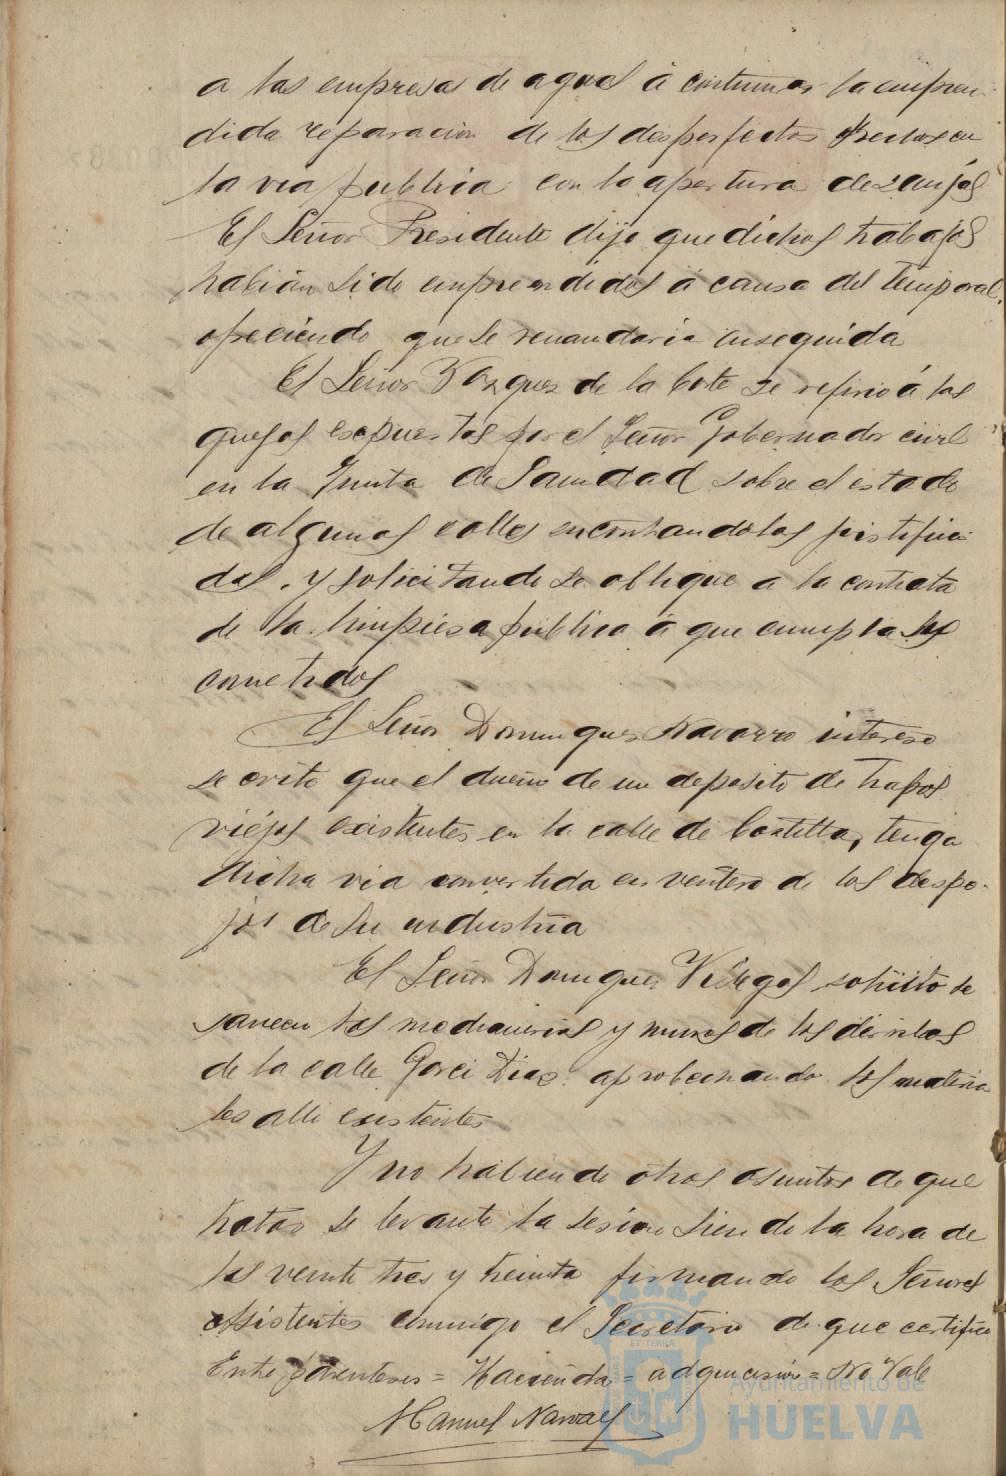 a las empresa de aguas á continuar la empren-
dida reparacion de los desperfectos hechos en
la via publica con la apertura de zanjas
El Señor Presidente dijo que dichos trabajos
habian sido emprendidos á causa del temporal,
ofreciendo que se reanudaria enseguida
El Señor Vazquez de la Corte se refirió á las
quejas expuestas por el Señor Gobernador civil
en la Junta de Sanidad sobre el estado
de algunas calles encontrandolas justifica
das, y solicitando se obligue a la contrata
de la limpieza pública á que cumpla sus
cometidos
El Señor Dominguez Navarro intereso
se evite que el dueño de un deposito de trapos
viejos existentes en la calle de Castilla, tenga
dicha via convertida en vertero de los despo-
jos de su industria
El Señor Dominguez Villegas solicitó se
saneen las medianerias y muros de los derribos
de la calle Garci Diaz aprobechando los materia
les alli existentes
Y no habiendo otros asuntos de que
tratar se levanto la sesion siendo la hora de
las veinte tres y treinta firmando los Señores
assistentes conmigo el Secretario de que certifico
Entre parenteses = Hacienda = adquicision = No Vale
Manuel Narvaez
Ayuntamiento de
HUELVA